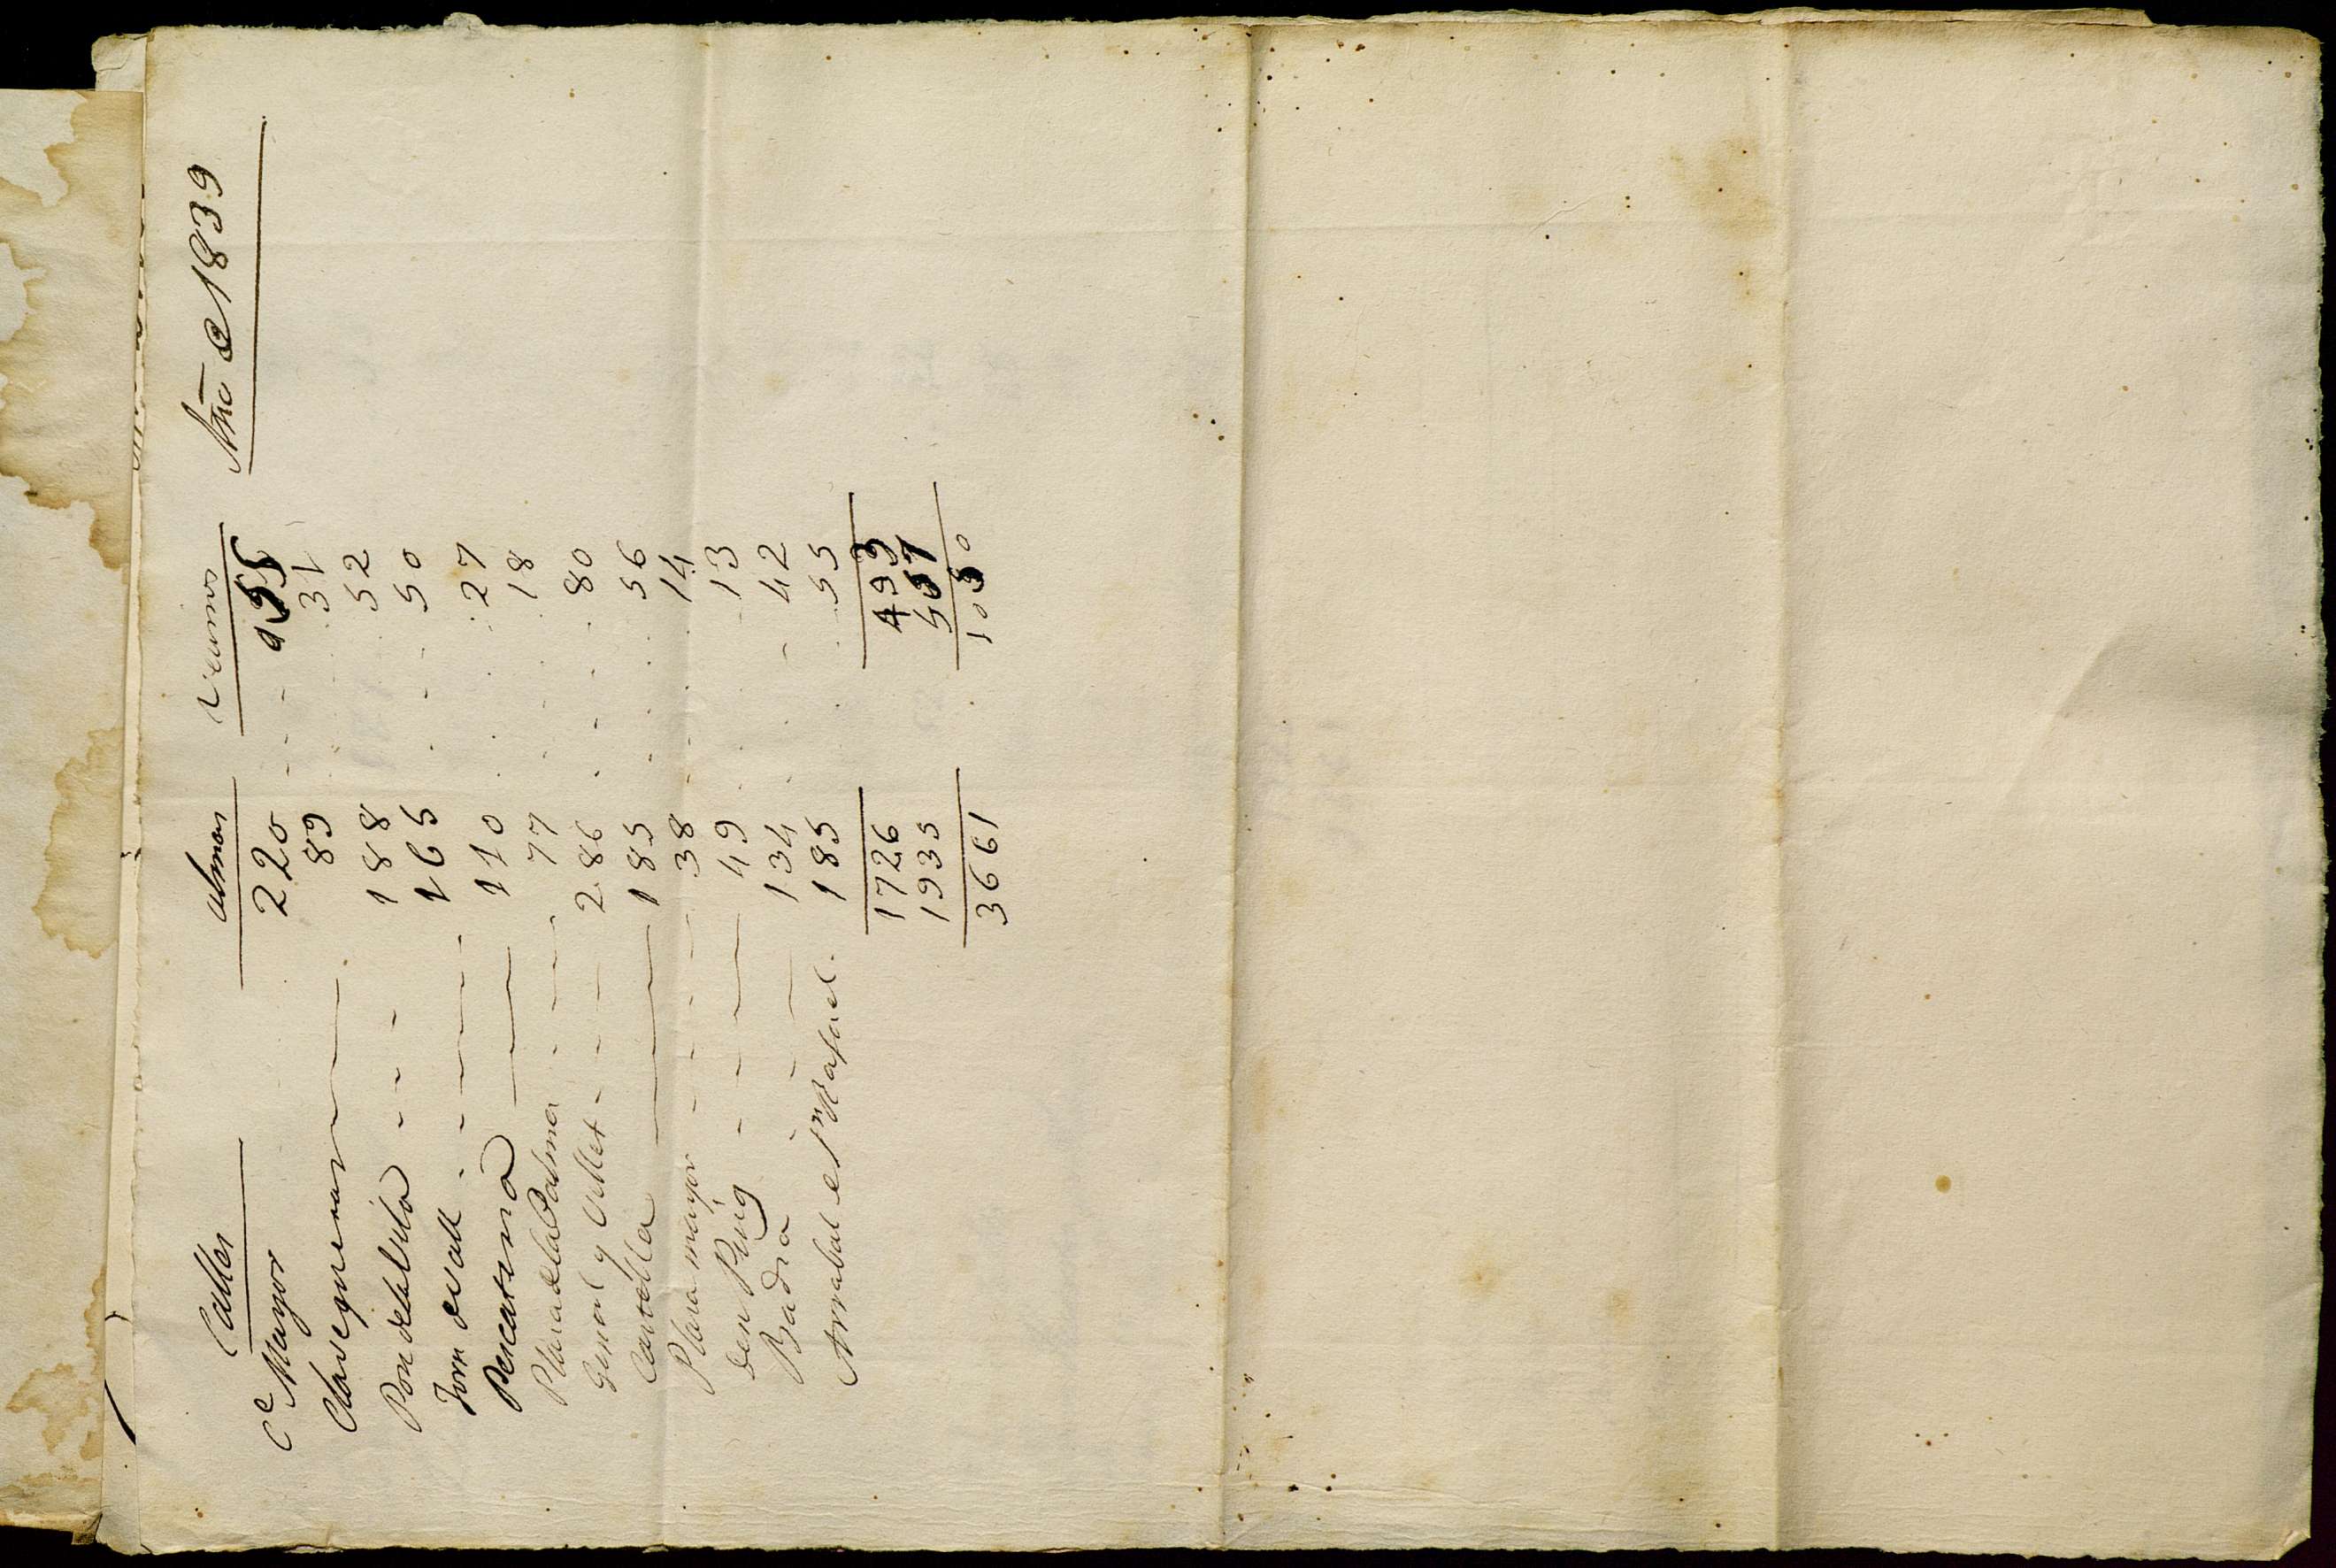 Calles almas Vecinos Año de 1839
Ce Mayor 220 - - - 55
Clavegueras 89 31
Pou de la Vila - - - 188 52
Forn de vall - - - 165 - - 50
Pescateria 110 27
Plasa de la Palma - - - 77 18
y - - - 286 - - - 80
Castella 185 - - - 56
Plasa mayor - - - 38 14
den Puig - - - 49 13
Badia - - - 134 - 42
Arrabal de Sn Rafael. 185 55
1726 493
1935 557
3661 1050